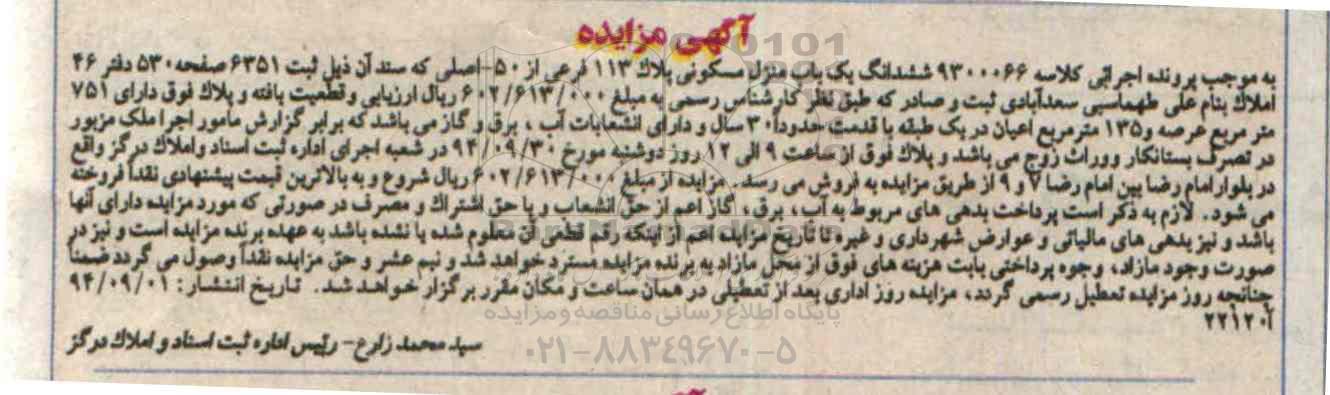 آگهی مزایده
به موجب پرونده اجرائی کلاسه ۹۳۰۰۰۶۶ ششدانگ یک باب منزل مسکونی پلاک ۱۱۳ فرعی از ۵۰-اصلی که سند آن ذیل ثبت ۶۳۵۱ صفحه ۵۳۰ دفتر ۴۶
املاک بنام علی طهماسبی سعدآبادی ثبت و صادر که طبق نظر کارشناس رسمی به مبلغ ۶۰۲/۶۱۳/۰۰۰ ریال ارزیابی و قطعیت یافته و پلاک فوق دارای ۷۵۱
متر مربع عرصه و۱۳۵ مترمربع اعیان در یک طبقه با قدمت حدوداً ۳۰ سال و دارای انشعابات آب ، برق و گاز می باشد که برابر گزارش مامور اجرا ملک مزبور
در تصرف بستانکار ووراث زوج می باشد و پلاک فوق از ساعت ۹ الی ۱۲ روز دوشنبه مورخ ۹۴/۰۹/۳۰ در شعبه اجرای اداره ثبت اسناد واملاک درگز واقع
در بلوار امام رضا بین امام رضا ۷ و ۹ از طریق مزایده به فروش می رسد. مزایده از مبلغ ۶۰۲/۶۱۳/۰۰۰ ریال شروع و به بالاترین قیمت پیشنهادی نقداً فروخته
می شود. لازم به ذکر است پرداخت بدهی های مربوط به آب ، برق ، گاز اعم از حق انشعاب و یا حق اشتراک و مصرف در صورتی که مورد مزایده دارای آنها
باشد و نیز بدهی های مالیاتی و عوارض شهرداری و غیره تا تاریخ مزایده اعم از اینکه رقم قطعی آن معلوم شده یا نشده باشد به عهده برنده مزایده است و نیز در
صورت وجود مازاد، وجوه پرداختی بابت هزینه های فوق از محل مازاد به برنده مزایده مسترد خواهد شد و نیم عشر و حق مزایده نقداً وصول می گردد ضمناً
چنانچه روز مزایده تعطیل رسمی گردد، مزایده روز اداری بعد از تعطیلی در همان ساعت و مکان مقرر برگزار خواهد شد. تاریخ انتشار: ۹۴/۰۹/۰۱
آ۲۲۱۲۰
سید محمد زارع- رئیس اداره ثبت اسناد و املاک درگز
پایگاه اطلاع رسانی مناقصه و مزایده
۰۲۱-۸۸۳۴۹۶۷۰-۵